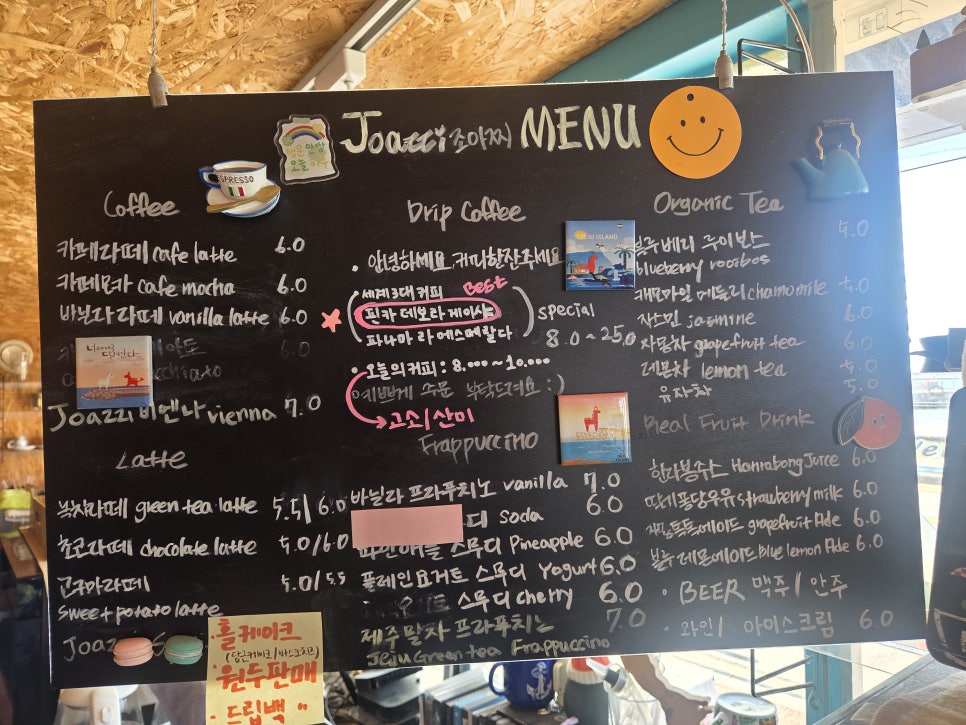 Joazzi 조아찌 MENU
ESPRESSO
Coffee
카페라떼 cafe latte 6.0
카페모카 cafe mocha 6.0
바닐라 라떼 vanilla latte 6.0
6.0
Joazzi 비엔나 vienna 7.0
Latte
녹차라떼 green tea latte 5.5/6.0
초코라떼 chocolate latte 5.0/6.0
고구마라떼 5.0/5.5
sweet potato latte
Joazzi
홀케이크
(당근케이크/바스크치즈)
원두판매
드립백
Drip Coffee
안녕하세요, 커피한잔주세요
세계3대커피 BEST
핀카 데보라 게이샤
파나마 라 에스메랄다
special
8.0~25.0
오늘의커피 : 8.000~10.000
예쁘게 주문 부탁드려요 :)
고소/산미
Frappuccino
바닐라 프라푸치노 vanilla 7.0
디 Soda 6.0
파인애플 스무디 Pineapple 6.0
플레인요거트 스무디 Yogurt 6.0
스무디 cherry 6.0
제주말차 프라푸치노 7.0
Jeju Green tea Frappuccino
Organic Tea
JEJU ISLAND
블루베리 루이보스 5.0
blueberry rooibos
캐모마일 메들리 chamomile 5.0
자스민 jasmine 6.0
자몽차 grapefruit tea 6.0
레몬차 lemon tea 5.0
유자차 5.0
Real Fruit Drink
한라봉주스 Hanrabong Juice 6.0
딸기퐁당우유 strawberry milk 6.0
자몽톡톡에이드 grapefruit Ade 6.0
블루레몬에이드 blue lemon Ade 6.0
BEER 맥주/안주
와인/ 아이스크림 6.0